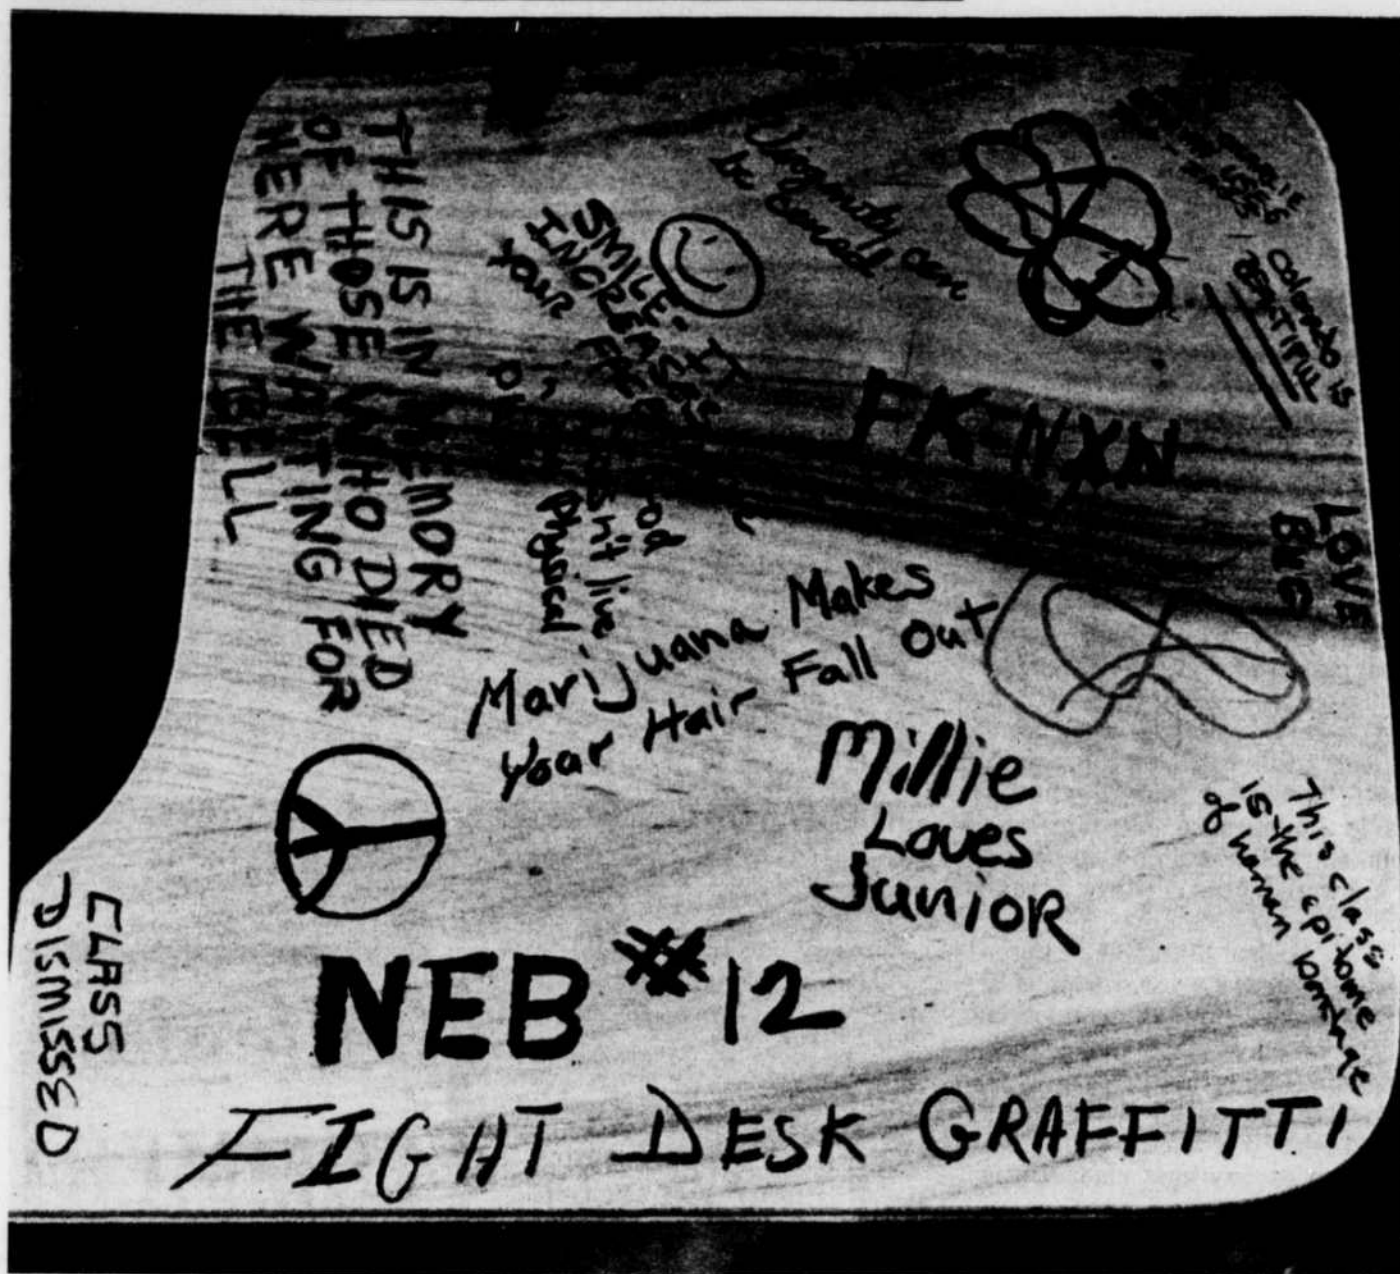 THIS IS IN MEMORY
OF THOSE WHO DIED
HERE WAITING FOR
THE BELL
SMILE - IT
INCREASES
YOUR FACE
Virginity can
be cured.
Colorado is
BEAUTIFUL
FK-NXN
LOVE
BUG
live
Physical
Marijuana Makes
Your Hair Fall Out
Millie
Loves
JunioR
This class
is the epitome
of human bondage
CLASS
DISMISSED
NEB #12
FIGHT DESK GRAFFITTI